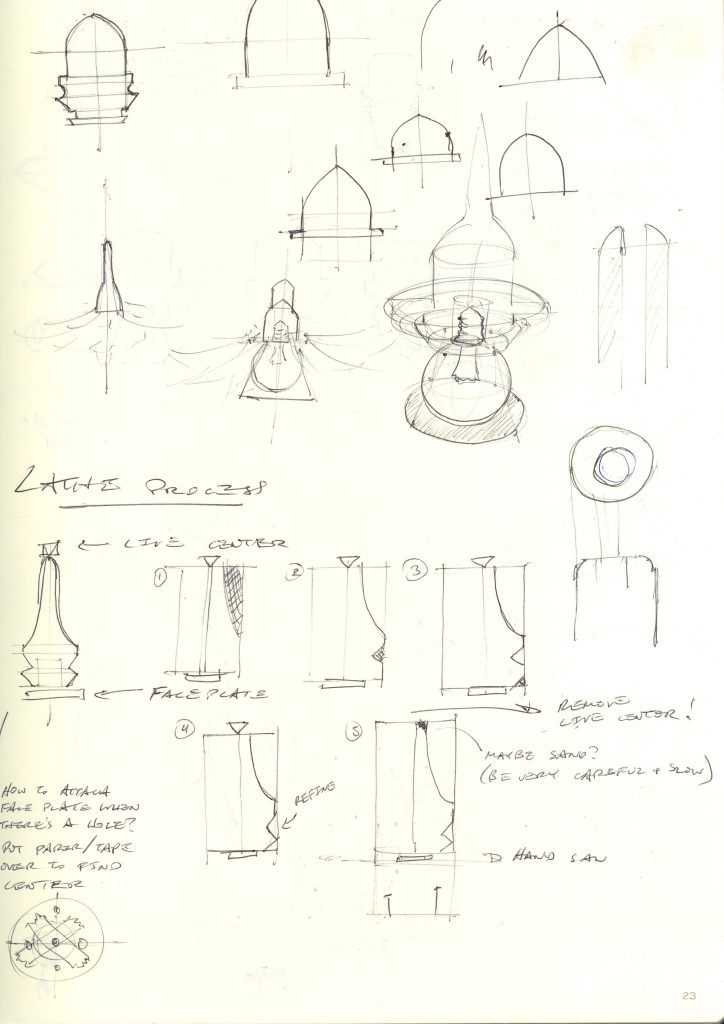 LATHE PROCESS
← LIVE CENTER
1
2
3
← FACEPLATE
REMOVE
LIVE CENTER!
4
5
MAYBE SAND?
(BE VERY CAREFUL + SLOW)
REFINE
HAND SAW
HOW TO ATTACH
FACE PLATE WHEN
THERE'S A HOLE?
PUT PAPER/TAPE
OVER TO FIND
CENTER
23